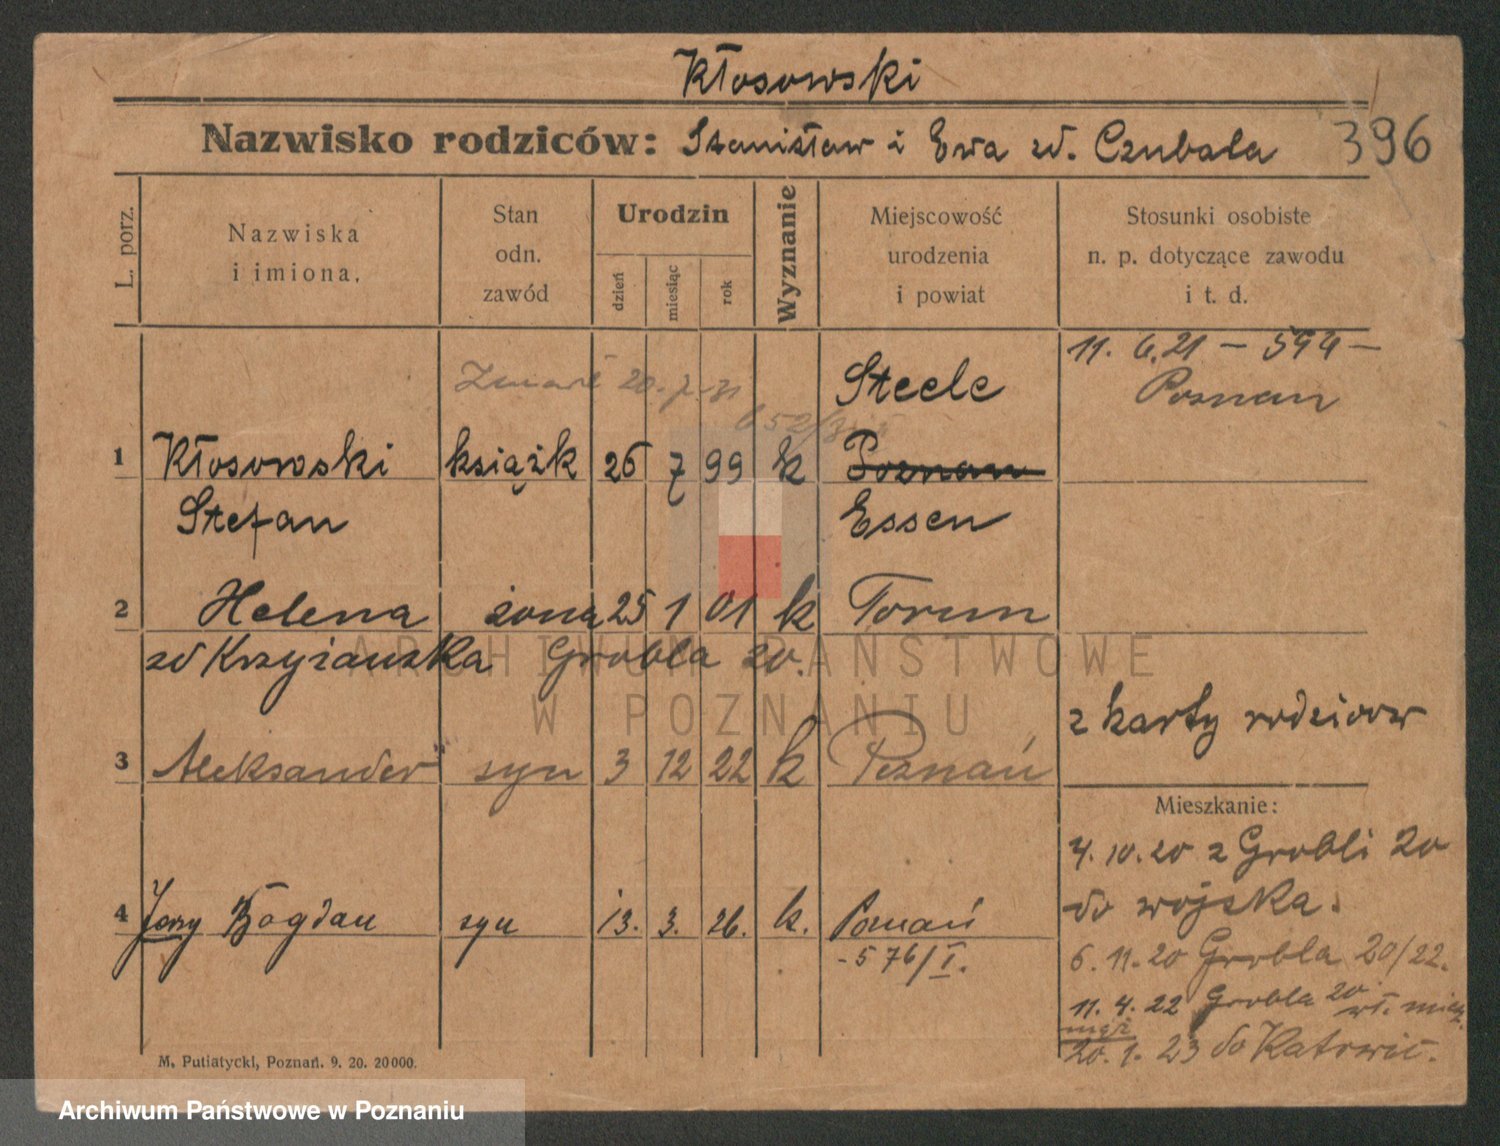 Kłosowski
Nazwisko rodziców: Stanisław i Ewa zd. Czubała 396
L. porz.
Nazwiska
i imiona.
Stan
odn.
zawód
Urodzin
dzień
miesiąc
rok
Wyznanie
Miejscowość
urodzenia
i powiat
Stosunki osobiste
n. p. dotyczące zawodu
i t. d.
11. 6. 21 — 594 —
Poznan
Steele
1 Kłosowski książk 26 7 99 k Poznan
Stefan Essen
2 Helena żona 25 1 01 k Torun
zd Krzyżanska Grobla 20.
z karty rodzicow
3 Aleksander syn 3 12 22 k Poznań
Mieszkanie:
4. 10. 20 z Grobli 20
do wojska.
4 Jerzy Bogdan syn 13. 3. 26. k. Poznań
- 576/I.
6. 11. 20 Grobla 20/22.
11. 4. 22 Grobla 20
20. 1. 23 do Katowic.
M. Putiatycki, Poznań. 9. 20. 20000.
ARCHIWUM PAŃSTWOWE
W POZNANIU
Archiwum Państwowe w Poznaniu